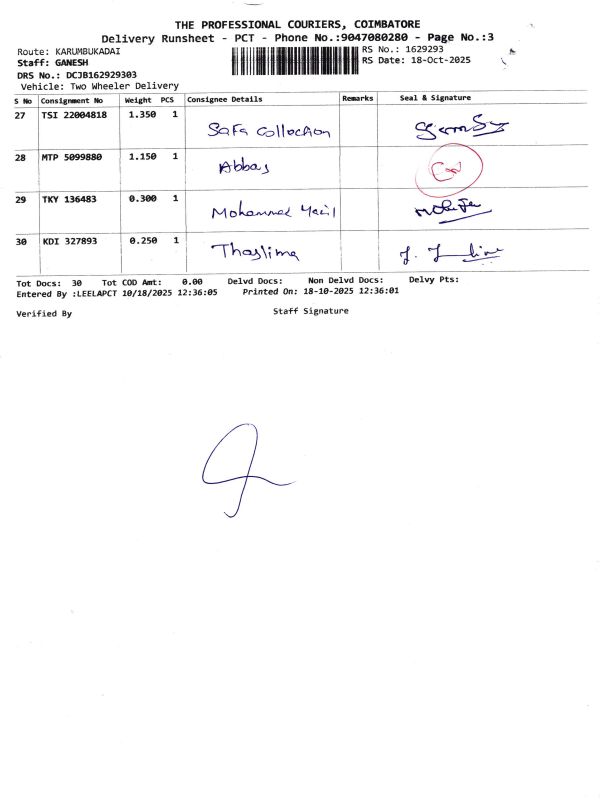 THE PROFESSIONAL COURIERS, COIMBATORE
Delivery Runsheet - PCT - Phone No.:9047080280 - Page No.:3
Route: KARUMBUKADAI RS No.: 1629293
Staff: GANESH RS Date: 18-Oct-2025
DRS No.: DCJB162929303
Vehicle: Two Wheeler Delivery
S No Consignment No Weight PCS Consignee Details Remarks Seal & Signature
27 TSI 22004818 1.350 1
Safa Collection
28 MTP 5099880 1.150 1
Abbas
29 TKY 136483 0.300 1
Mohammed
30 KDI 327893 0.250 1
Thaslima
Tot Docs: 30 Tot COD Amt: 0.00 Delvd Docs: Non Delvd Docs: Delvy Pts:
Entered By :LEELAPCT 10/18/2025 12:36:05 Printed On: 18-10-2025 12:36:01
Verified By Staff Signature